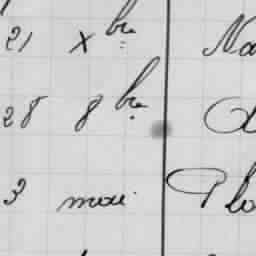 21 x bre Na
28 8 bre
3 mai Plo